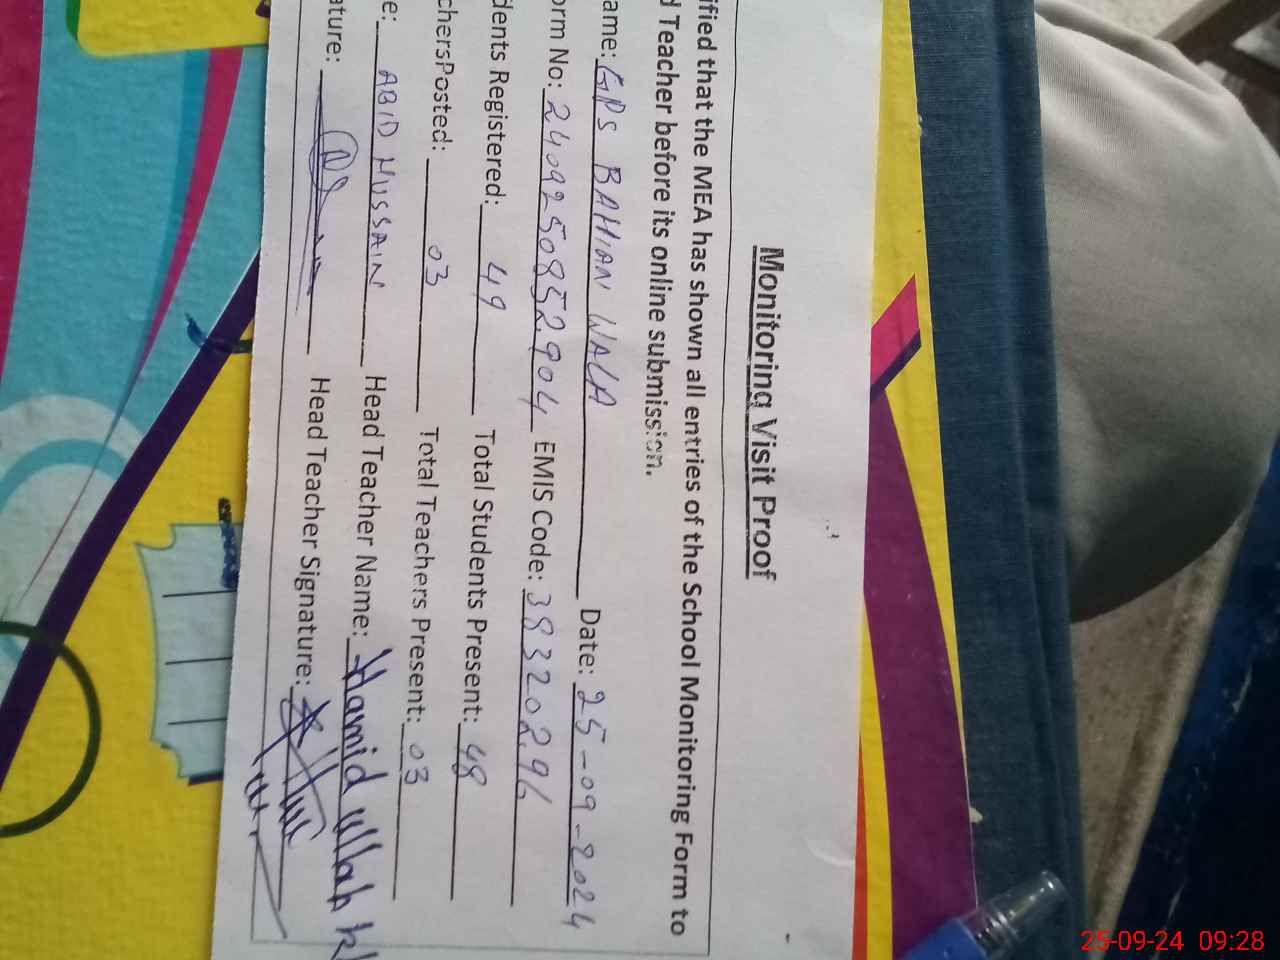 Monitoring Visit Proof
ified that the MEA has shown all entries of the School Monitoring Form to
d Teacher before its online submission.
ame: GPS BAHIAN WALA Date: 25-09-2024
orm No: 240925085 2904 EMIS Code: 38320296
dents Registered: 49 Total Students Present: 48
chersPosted: 03 Total Teachers Present: 03
e: ABID HUSSAIN Head Teacher Name: Hamid ullah k
ature: Head Teacher Signature:
25-09-24 09:28